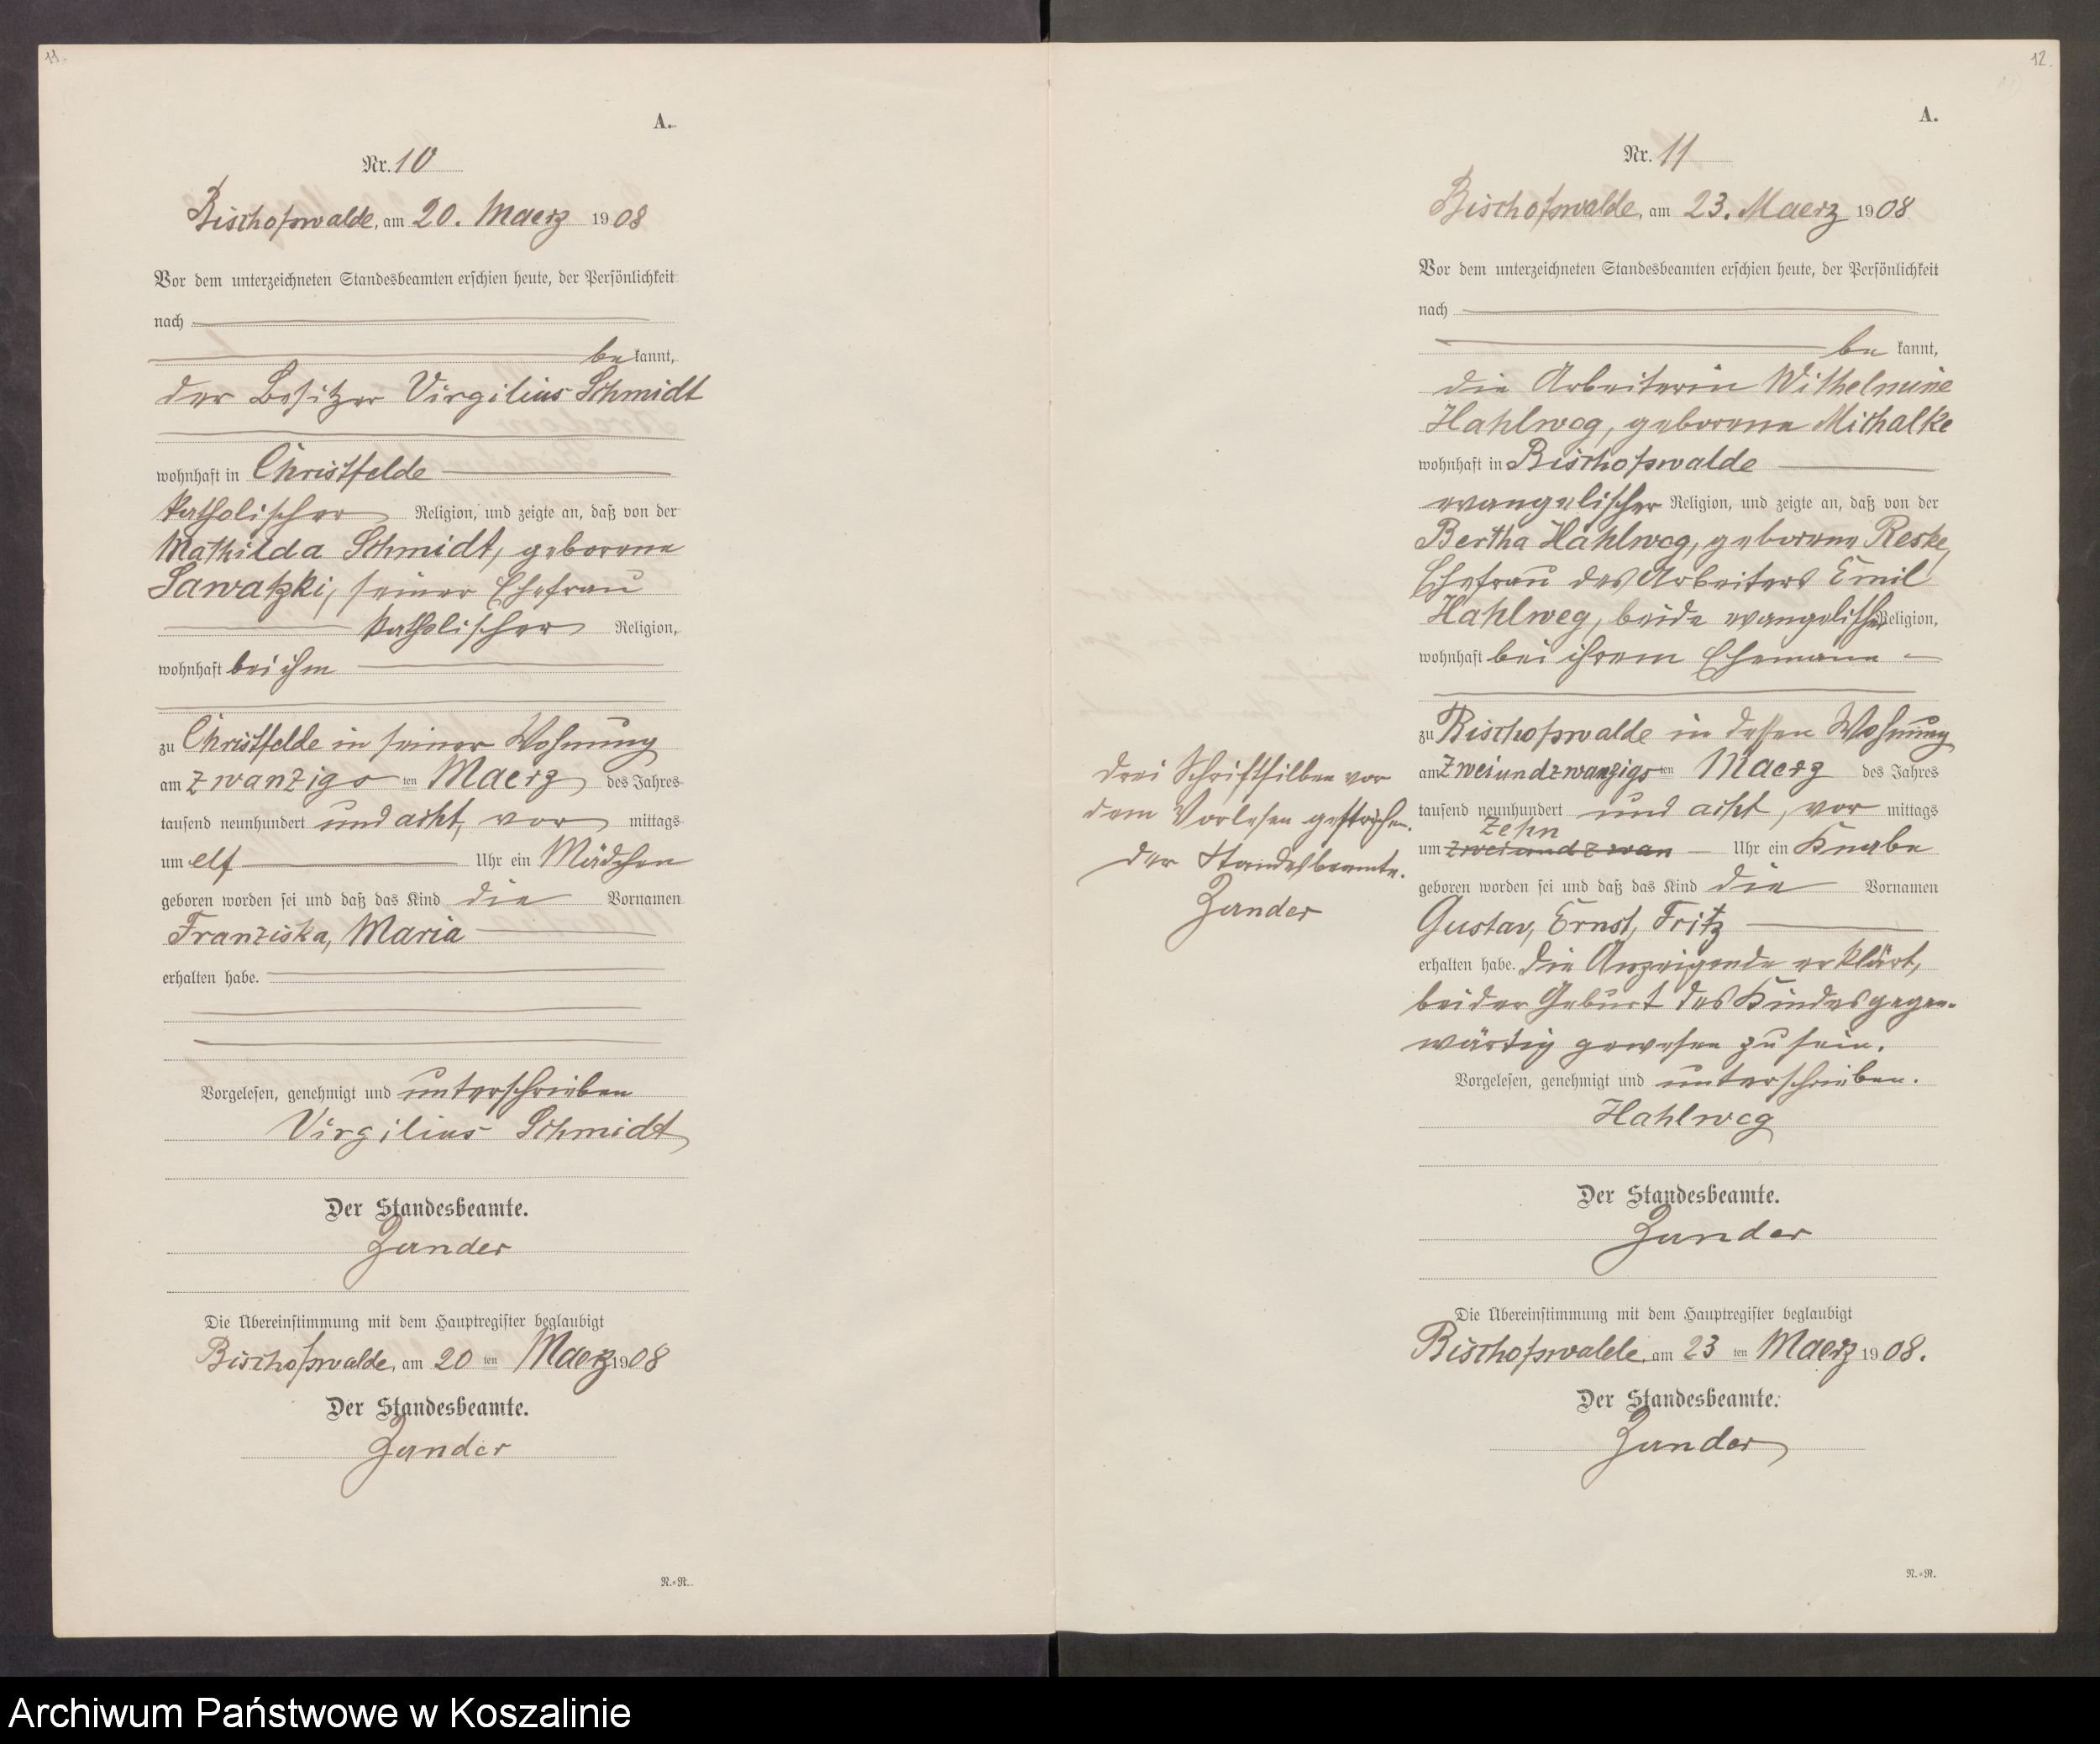 11.
A.
Nr. 10
Bischofswalde, am 20. Maerz 1908
Vor dem unterzeichneten Standesbeamten erschien heute, der Persönlichkeit
nach
bekannt,
der Besitzer Virgilius Schmidt
wohnhaft in Christfelde
katholischer Religion, und zeigte an, daß von der
Mathilda Schmidt, geborene
Sawatzki, seiner Ehefrau
katholischer Religion,
wohnhaft bei ihm
zu Christfelde in seiner Wohnung
am zwanzigsten Maerz des Jahres
tausend neunhundert und acht, vormittags
um elf Uhr ein Mädchen
geboren worden sei und daß das Kind die Vornamen
Franziska, Maria
erhalten habe.
Vorgelesen, genehmigt und unterschrieben
Virgilius Schmidt
Der Standesbeamte.
Zander
Die Übereinstimmung mit dem Hauptregister beglaubigt
Bischofswalde, am 20ten Maerz 1908
Der Standesbeamte.
Zander
N.=R.
12.
A.
Nr. 11
Bischofswalde, am 23. Maerz 1908
Vor dem unterzeichneten Standesbeamten erschien heute, der Persönlichkeit
nach
bekannt,
die Arbeiterin Wilhelmine
Hahlweg, geborene Michalke
wohnhaft in Bischofswalde
evangelischer Religion, und zeigte an, daß von der
Bertha Hahlweg, geborene Reske,
Ehefrau des Arbeiters Emil
Hahlweg, beide evangelischer Religion,
wohnhaft bei ihrem Ehemann
zu Bischofswalde in dessen Wohnung
am zweiundzwanzigsten Maerz des Jahres
tausend neunhundert und acht, vormittags
zehn
um zweiundzwan Uhr ein Knabe
geboren worden sei und daß das Kind die Vornamen
Gustav, Ernst, Fritz
erhalten habe. Die Anzeigende erklärt,
bei der Geburt des Kindes gegen-
wärtig gewesen zu sein.
Vorgelesen, genehmigt und unterschrieben.
Hahlweg
Der Standesbeamte.
Zander
Die Übereinstimmung mit dem Hauptregister beglaubigt
Bischofswalde, am 23ten Maerz 1908.
Der Standesbeamte.
Zander
N.=R.
Drei Schriftsilben vor
dem Vorlesen gestrichen.
Der Standesbeamte.
Zander
Archiwum Państwowe w Koszalinie